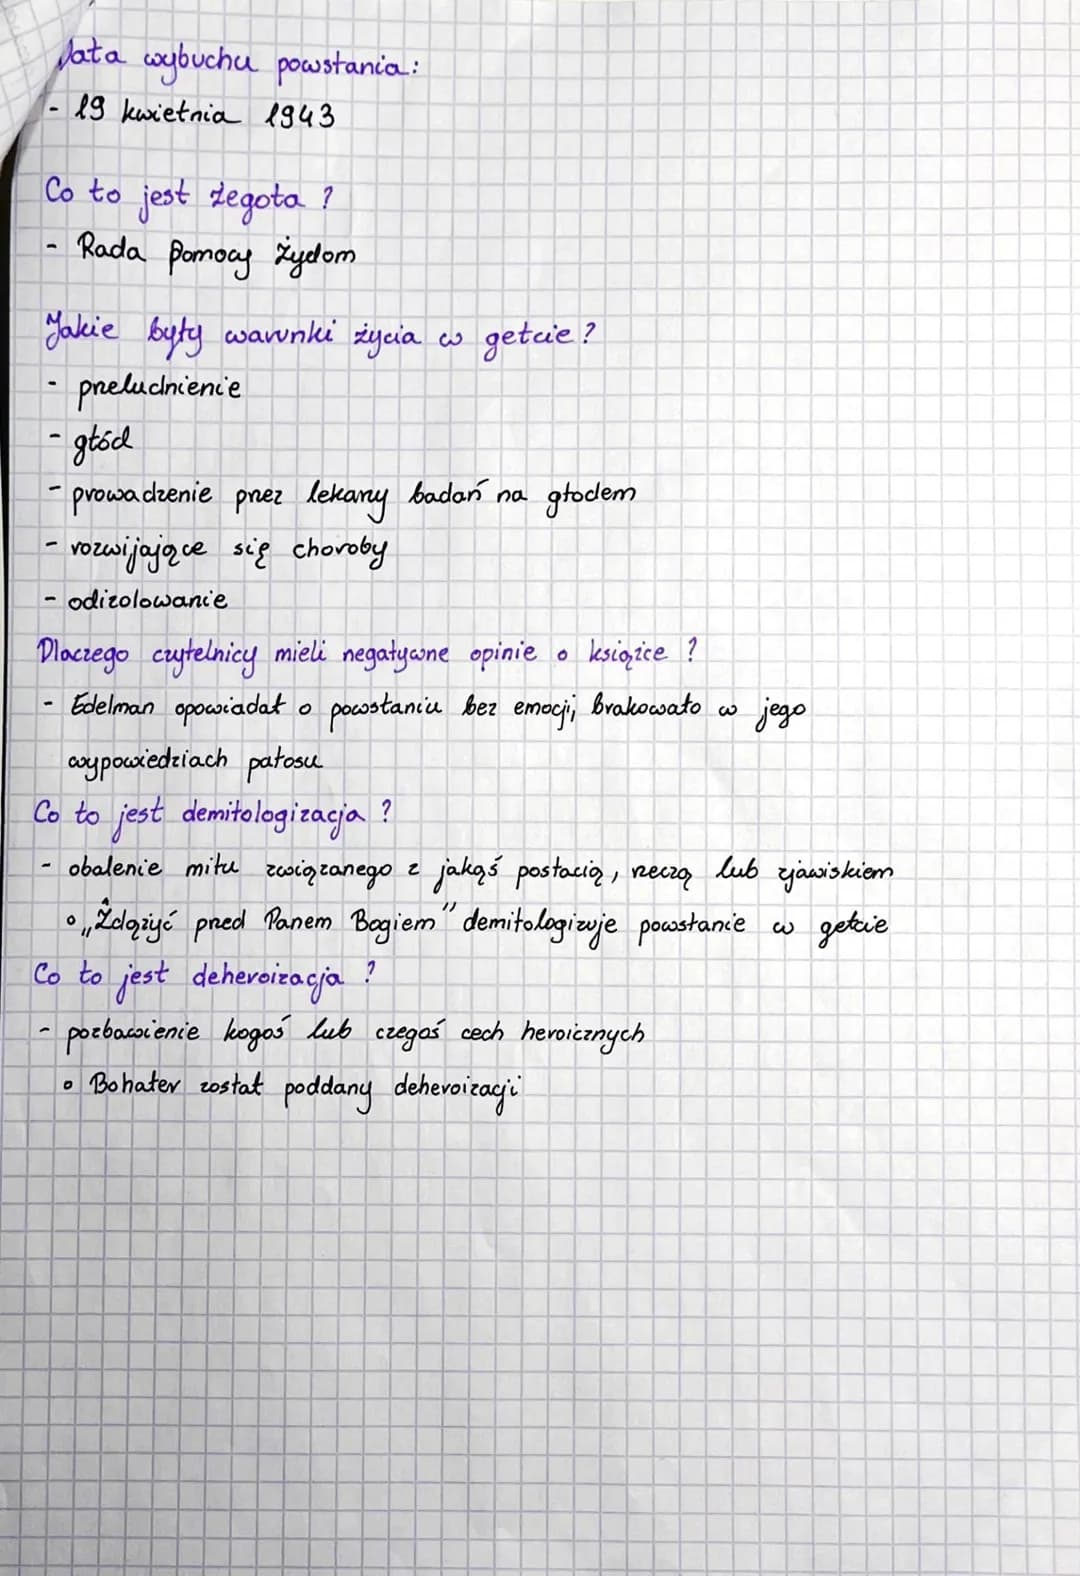 Data wybuchu powstania:
- 19 kwietnia 1943
Co to jest żegota ?
- Rada Pomocy Żydom
Jakie były warunki życia w getcie ?
- przeludnienie
- głód
- prowadzenie przez lekarzy badań na głodem
- rozwijające się choroby
- odizolowanie
Dlaczego czytelnicy mieli negatywne opinie o książce ?
- Edelman opowiadał o powstaniu bez emocji, brakowało w jego
wypowiedziach patosu
Co to jest demitologizacja ?
- obalenie mitu związanego z jakąś postacią, rzeczą lub zjawiskiem
o „Zdążyć przed Panem Bogiem" demitologizuje powstanie w getcie
Co to jest deheroizacja ?
- pozbawienie kogoś lub czegoś cech heroicznych
o Bohater został poddany deheroizacji